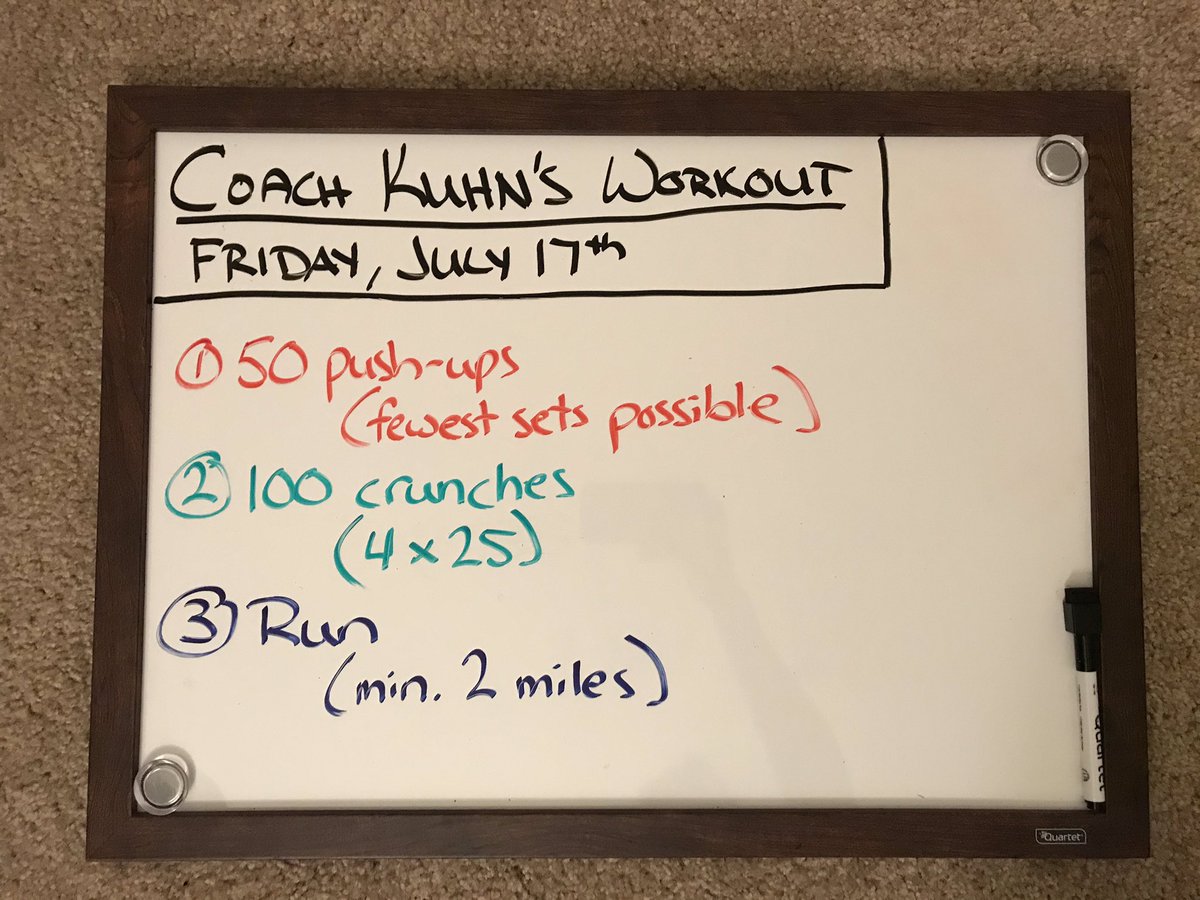 COACH KUHN'S WORKOUT
FRIDAY, JULY 17th
① 50 push-ups
(fewest sets possible)
② 100 crunches
(4 x 25)
③ Run
(min. 2 miles)
Quartet
Quartet